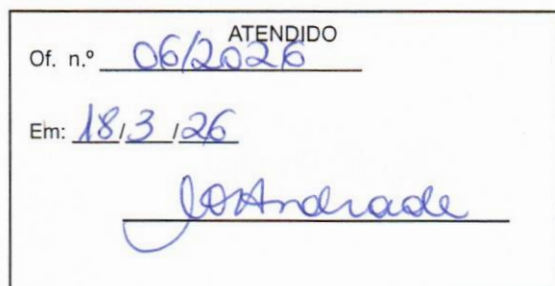 ATENDIDO
Of. n.º 06/2026
Em: 18/3/26
Andrade